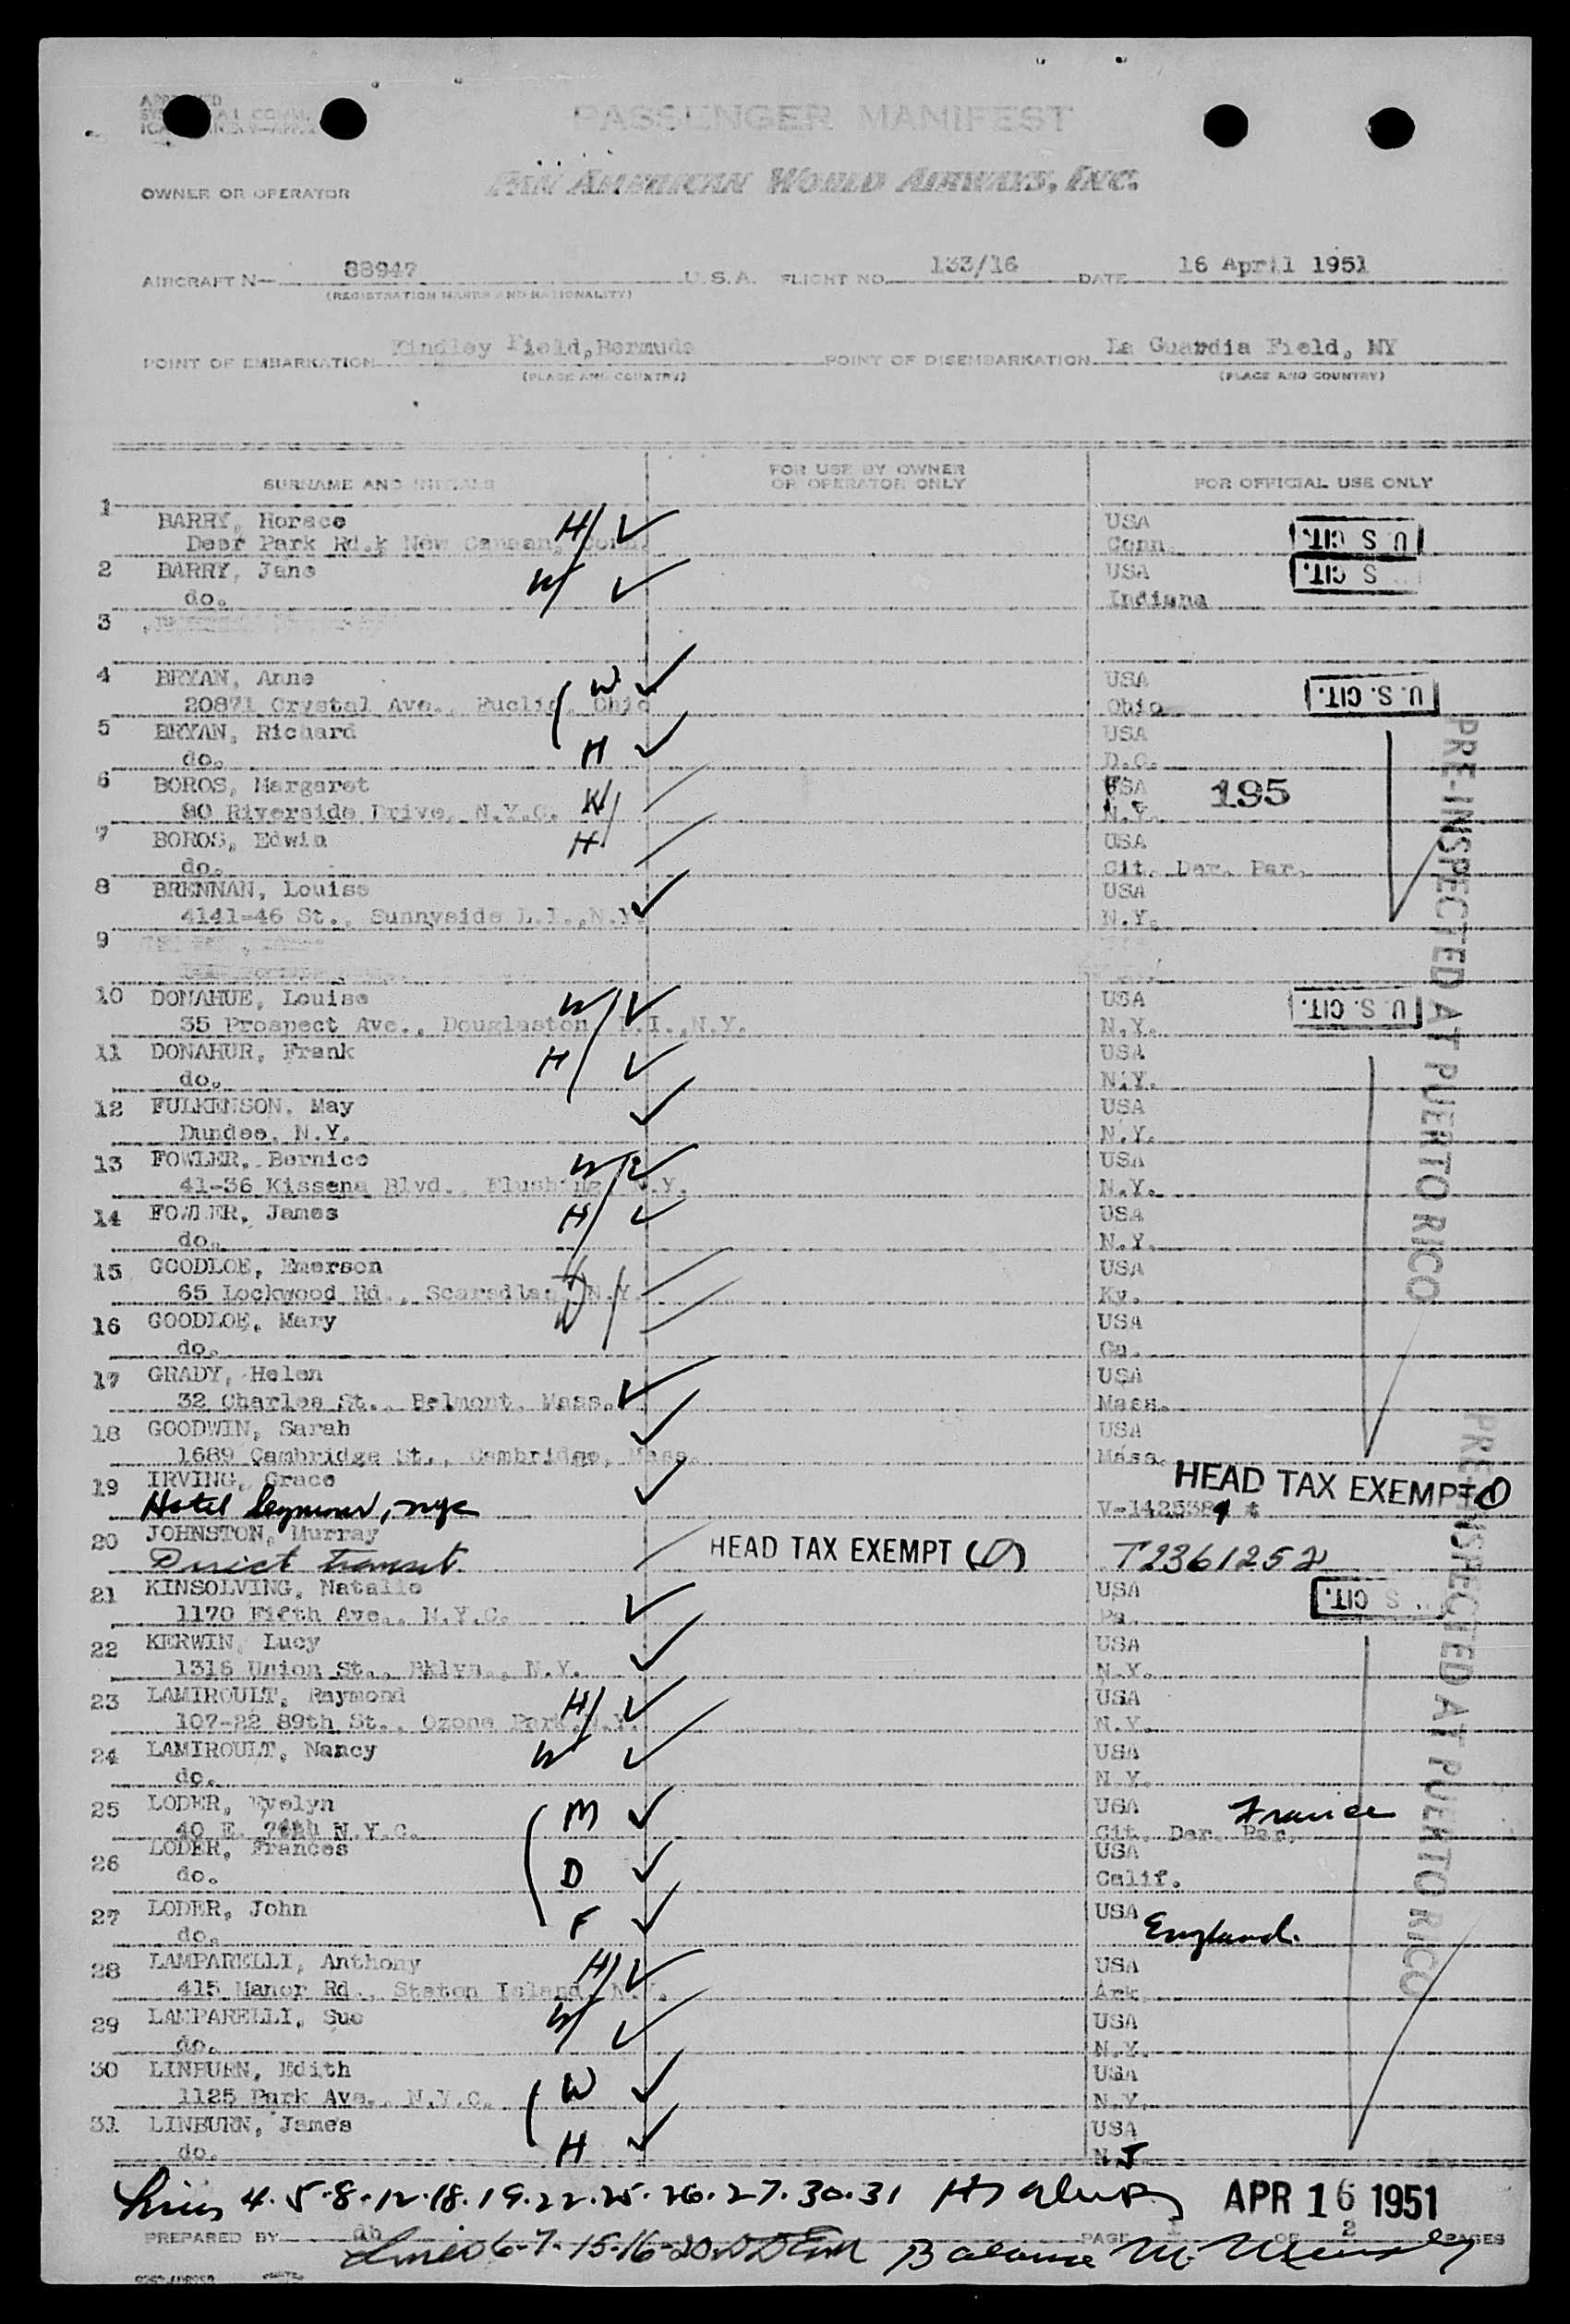 PASSENGER MANIFEST
PAN AMERICAN WORLD AIRWAYS, INC.
OWNER OR OPERATOR
AIRCRAFT N— 88947 U.S.A. FLIGHT NO. 133/16 DATE 16 April 1951
(REGISTRATION MARKS AND NATIONALITY)
POINT OF EMBARKATION Kindley Field, Bermuda POINT OF DISEMBARKATION La Guardia Field, NY
(PLACE AND COUNTRY) (PLACE AND COUNTRY)
SURNAME AND INITIALS FOR USE BY OWNER OR OPERATOR ONLY FOR OFFICIAL USE ONLY
1 BARRY, Horace H USA U S CIT.
Deer Park Rd.k New Canaan, Conn. Conn.
2 BARRY, Jane W USA S CIT.
do. Indiana
3
4 BRYAN, Anne W USA U.S. CIT.
20871 Crystal Ave., Euclid, Ohio Ohio
5 BRYAN, Richard USA
do. H D.C.
6 BOROS, Margaret W USA 195
80 Riverside Drive, N.Y.C. N.Y.
7 BOROS, Edwin H USA
do. Cit. Der. Par.
8 BRENNAN, Louise USA
4141-46 St., Sunnyside L.I.,N.Y. N.Y.
9
10 DONAHUE, Louise W USA U.S. CIT.
35 Prospect Ave., Douglaston, L.I.,N.Y. N.Y.
11 DONAHUR, Frank H USA
do. N.Y.
12 FULKENSON, May USA
Dundee, N.Y. N.Y.
13 FOWLER, Bernice W USA
41-36 Kissena Blvd., Flushing N.Y. N.Y.
14 FOWLER, James H USA
do. N.Y.
15 GOODLOE, Emerson USA
65 Lockwood Rd., N.Y. Ky.
16 GOODLOE, Mary W USA
do. Ga.
17 GRADY, Helen USA
32 Charles St., Belmont, Mass. Mass.
18 GOODWIN, Sarah USA
1689 Cambridge St., Cambridge, Mass. Mass.
19 IRVING, Grace HEAD TAX EXEMPT
Hotel Seymour, nyc
20 JOHNSTON, Murray HEAD TAX EXEMPT (D) T2361252
Direct transit.
21 KINSOLVING, Natalie USA S CIT.
1170 Fifth Ave., N.Y.C. Pa.
22 KERWIN, Lucy USA
1316 Union St., Bklyn., N.Y. N.Y.
23 LAMIROULT, Raymond H USA
107-22 89th St., Ozone Park,N.Y. N.Y.
24 LAMIROULT, Nancy W USA
do. N.Y.
25 LODER, Evelyn M USA France
40 E. N.Y.C. Cit. Der. Par.
26 LODER, Frances USA
do. D Calif.
27 LODER, John F USA England.
do.
28 LAMPARELLI, Anthony H USA
415 Manor Rd., Staten Island, N.Y. Ark.
29 LAMPARELLI, Sue W USA
do. N.Y.
30 LINBURN, Edith W USA
1125 Park Ave., N.Y.C. N.Y.
31 LINBURN, James USA
do. H N.J
PRE-INSPECTED AT PUERTO RICO
PRE-INSPECTED AT PUERTO RICO
Lines 4.5.8.12.18.19.22.25.26.27.30.31 APR 16 1951
PREPARED BY db PAGE 1 OF 2 PAGES
Lines 6-7-15-16-20 Balance